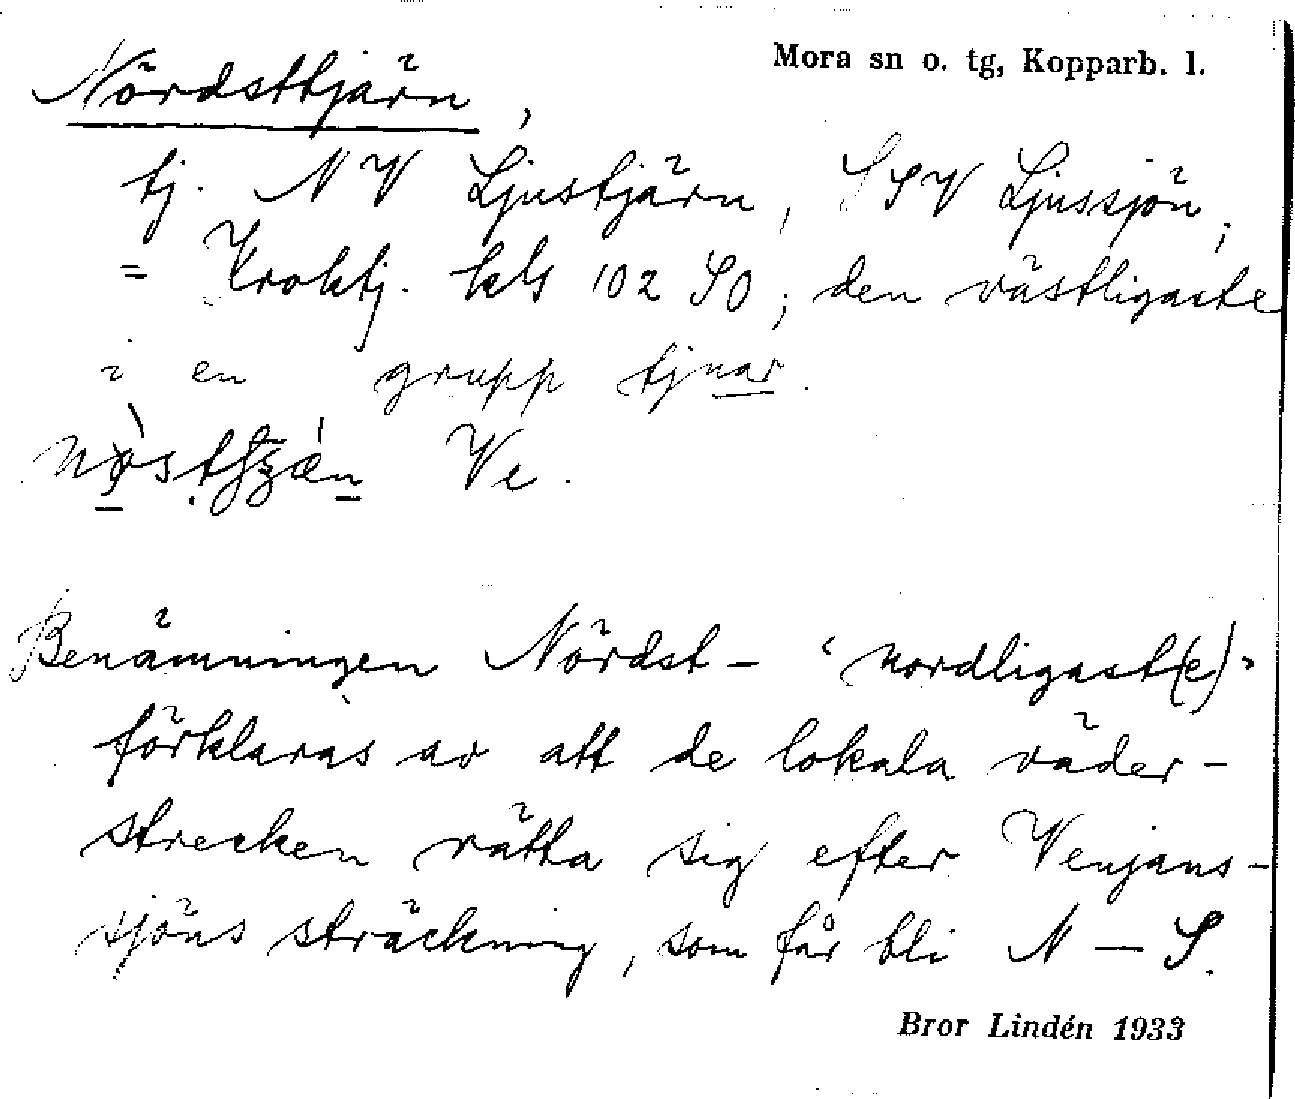 Mora sn o. tg, Kopparb. l.
Nördsttjärn,
tj. NV Ljustjärn, SSV Ljussjön,
= Kroktj. kls 102 SO; den västligaste
i en grupp tjnar.
Ve.
Benämningen Nördst- "nordligast(e)"
förklaras av att de lokala väder-
strecken rätta sig efter Venjans-
sjöns sträckning, som får bli N — S.
Bror Lindén 1933